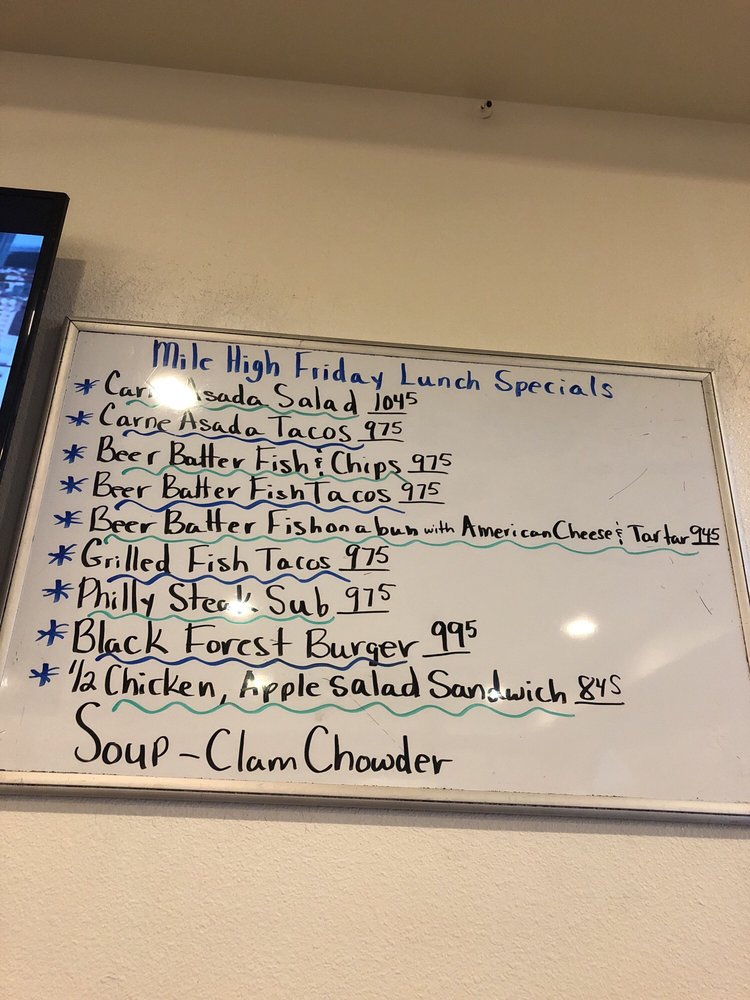 Mile High Friday Lunch Specials
* Carne Asada Salad 1045
* Carne Asada Tacos 975
* Beer Batter Fish & Chips 975
* Beer Batter Fish Tacos 975
* Beer Batter Fish on a bun with American Cheese & Tartar 945
* Grilled Fish Tacos 975
* Philly Steak Sub 975
* Black Forest Burger 995
* 1/2 Chicken, Apple Salad Sandwich 845
Soup - Clam Chowder